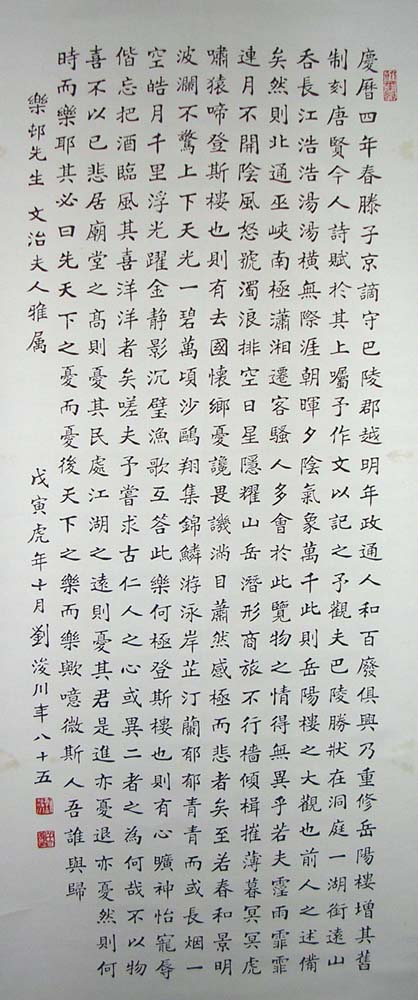 慶曆四年春滕子京謫守巴陵郡越明年政通人和百廢俱興乃重修岳陽樓增其舊
制刻唐賢今人詩賦於其上囑予作文以記之予觀夫巴陵勝狀在洞庭一湖銜遠山
吞長江浩浩湯湯橫無際涯朝暉夕陰氣象萬千此則岳陽樓之大觀也前人之述備
矣然則北通巫峽南極瀟湘遷客騷人多會於此覽物之情得無異乎若夫霪雨霏霏
連月不開陰風怒號濁浪排空日星隱耀山岳潛形商旅不行檣傾楫摧薄暮冥冥虎
嘯猿啼登斯樓也則有去國懷鄉憂讒畏譏滿目蕭然感極而悲者矣至若春和景明
波瀾不驚上下天光一碧萬頃沙鷗翔集錦鱗游泳岸芷汀蘭郁郁青青而或長烟一
空皓月千里浮光躍金静影沉璧漁歌互答此樂何極登斯樓也則有心曠神怡寵辱
偕忘把酒臨風其喜洋洋者矣嗟夫予嘗求古仁人之心或異二者之為何哉不以物
喜不以己悲居廟堂之高則憂其民處江湖之遠則憂其君是進亦憂退亦憂然則何
時而樂耶其必曰先天下之憂而憂後天下之樂而樂歟噫微斯人吾誰與歸
樂邨先生 文治夫人雅属 戊寅虎年十月劉浚川年八十五